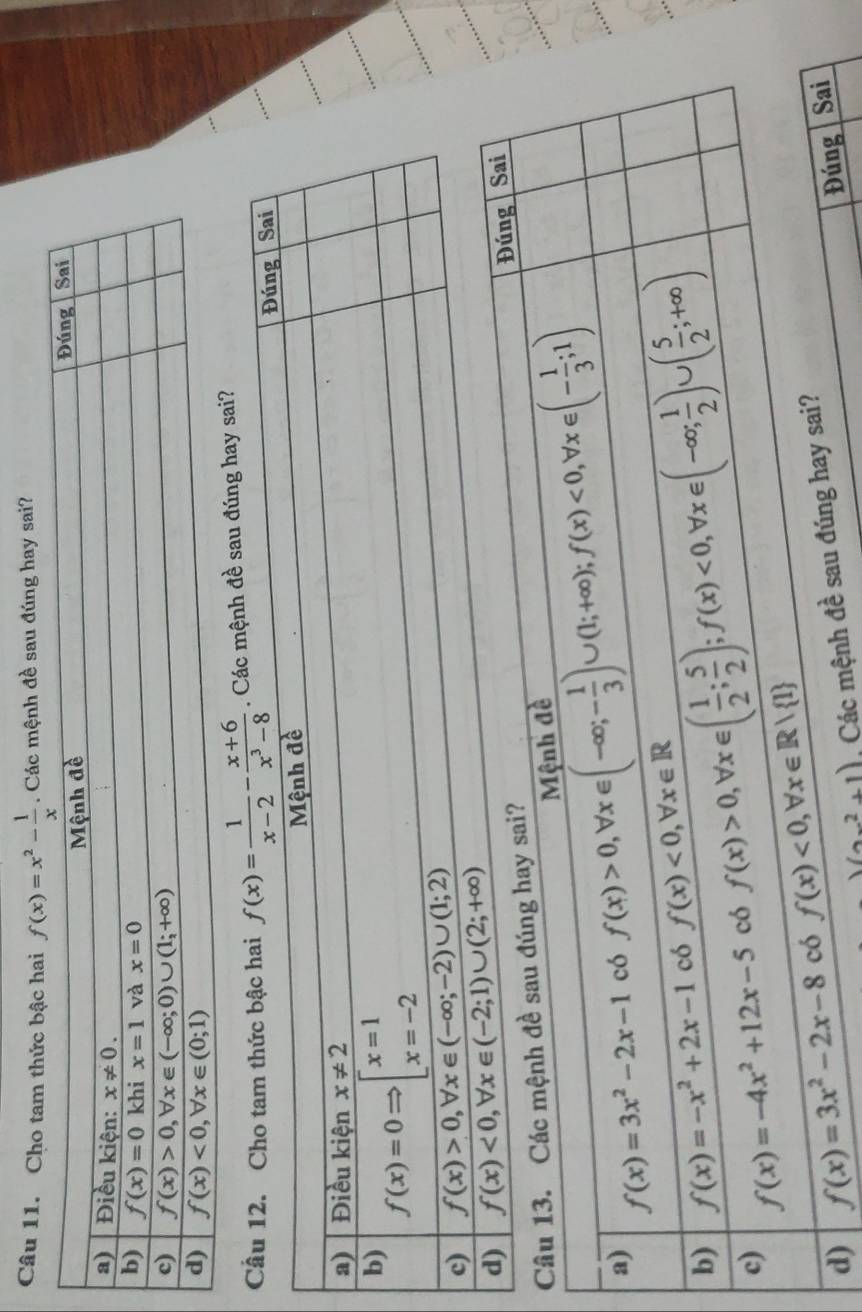 Câu 11. Cho tam thức bậc hai f(x) = x² − 1/x. Các mệnh đề sau đúng hay sai?
Mệnh đề Đúng Sai
a) Điều kiện: x ≠ 0.
b) f(x) = 0 khi x = 1 và x = 0
c) f(x) > 0, ∀x ∈ (−∞; 0) ∪ (1; +∞)
d) f(x) < 0, ∀x ∈ (0; 1)
Câu 12. Cho tam thức bậc hai f(x) = 1/(x − 2) − (x + 6)/(x³ − 8). Các mệnh đề sau đúng hay sai?
Mệnh đề Đúng Sai
a) Điều kiện x ≠ 2
b) f(x) = 0 ⇒ [x = 1
x = −2
c) f(x) > 0, ∀x ∈ (−∞; −2) ∪ (1; 2)
d) f(x) < 0, ∀x ∈ (−2; 1) ∪ (2; +∞)
Câu 13. Các mệnh đề sau đúng hay sai?
Mệnh đề Đúng Sai
a) f(x) = 3x² − 2x − 1 có f(x) > 0, ∀x ∈ (−∞; −1/3) ∪ (1; +∞); f(x) < 0, ∀x ∈ (−1/3; 1)
b) f(x) = −x² + 2x − 1 có f(x) < 0, ∀x ∈ ℝ
c) f(x) = −4x² + 12x − 5 có f(x) > 0, ∀x ∈ (1/2; 5/2); f(x) < 0, ∀x ∈ (−∞; 1/2) ∪ (5/2; +∞)
d) f(x) = 3x² − 2x − 8 có f(x) < 0, ∀x ∈ ℝ \ {1}
Các mệnh đề sau đúng hay sai?
Đúng Sai